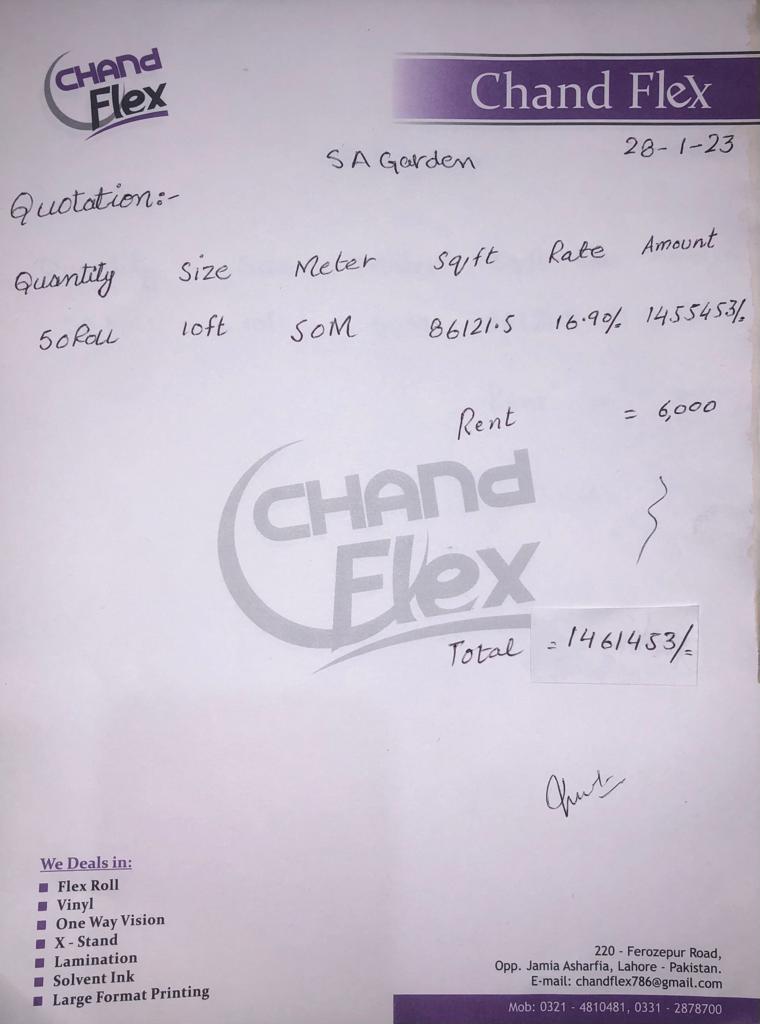 CHAND
Flex
Chand Flex
28-1-23
S A Garden
Quotation:-
Quantity Size Meter Sqft Rate Amount
50Roll 10ft 50M 86121.5 16.90/. 1455453/.
Rent = 6,000
CHAND
Flex
Total = 1461453/=
We Deals in:
Flex Roll
Vinyl
One Way Vision
X - Stand
Lamination
Solvent Ink
Large Format Printing
220 - Ferozepur Road,
Opp. Jamia Asharfia, Lahore - Pakistan.
E-mail: chandflex786@gmail.com
Mob: 0321 - 4810481, 0331 - 2878700